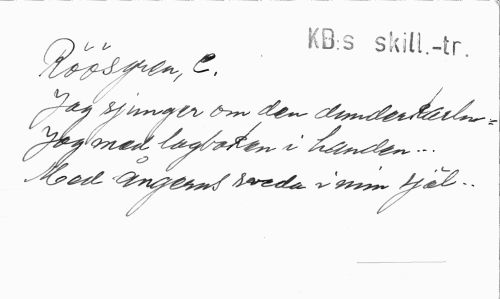 KB:s skill.-tr.
Röösgren, C.
Jag sjunger om den dunderkarln =
Jag med lagboken i handen...
Med ångerns sveda i min själ..